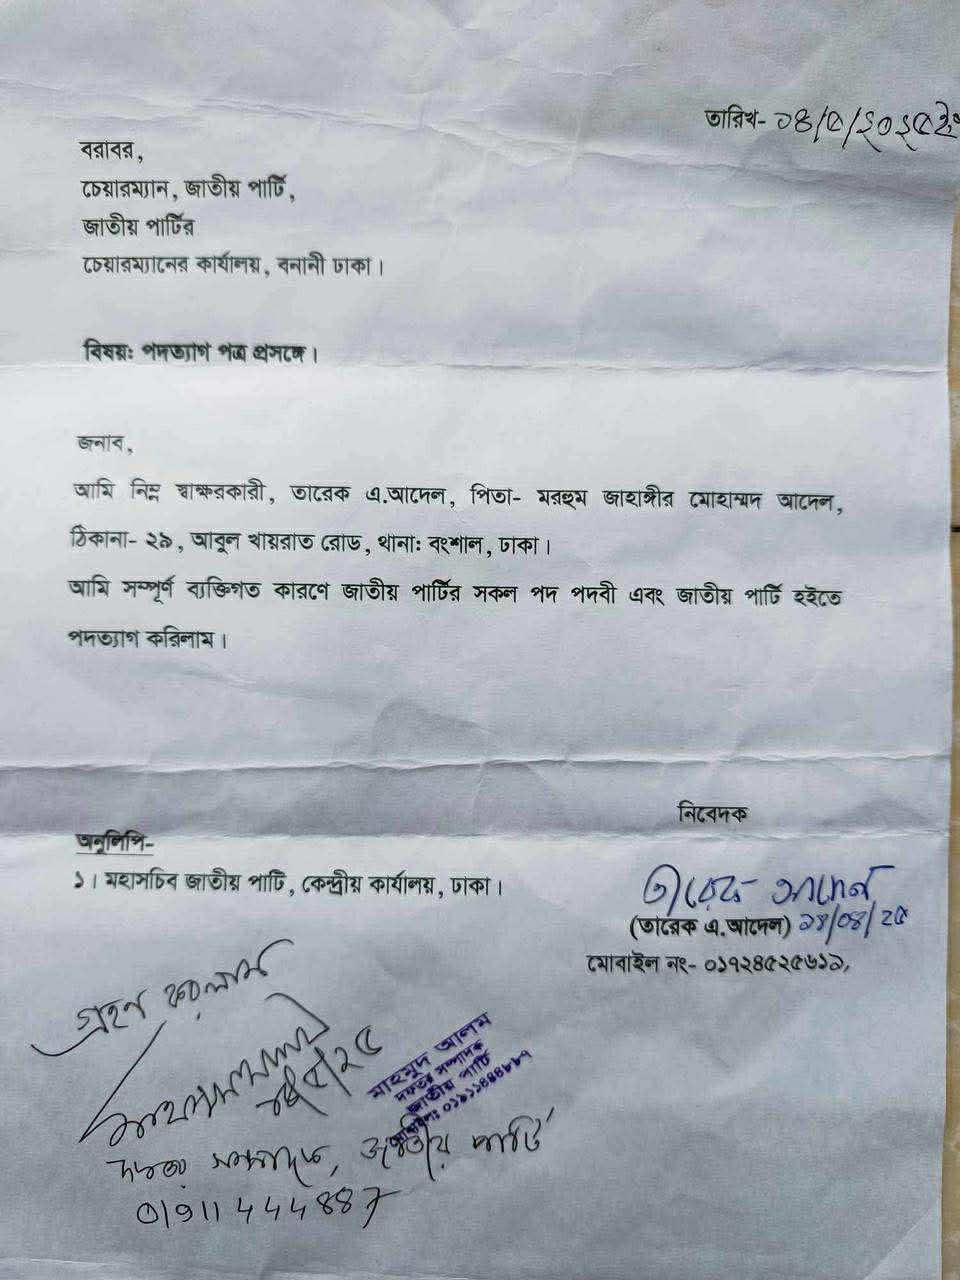 তারিখ- ১৪/৫/২০২৫ইং
বরাবর,
চেয়ারম্যান, জাতীয় পার্টি,
জাতীয় পার্টির
চেয়ারম্যানের কার্যালয়, বনানী ঢাকা।
বিষয়ঃ পদত্যাগ পত্র প্রসঙ্গে।
জনাব,
আমি নিম্ন স্বাক্ষরকারী, তারেক এ.আদেল, পিতা- মরহুম জাহাঙ্গীর মোহাম্মদ আদেল,
ঠিকানা- ২৯, আবুল খায়রাত রোড, থানাঃ বংশাল, ঢাকা।
আমি সম্পূর্ণ ব্যক্তিগত কারণে জাতীয় পার্টির সকল পদ পদবী এবং জাতীয় পার্টি হইতে
পদত্যাগ করিলাম।
নিবেদক
অনুলিপি-
১। মহাসচিব জাতীয় পার্টি, কেন্দ্রীয় কার্যালয়, ঢাকা।
তারেক আদেল
(তারেক এ.আদেল)
মোবাইল নং- ০১৭২৪৫২৫৬১৯,
গ্রহন করলাম
মাহমুদ আলম
দফতর সম্পাদক
জাতীয় পার্টি
মোবাইল: ০১৯১১৪৪৪৮৮৭
দফতর সম্পাদক, জাতীয় পার্টি
01911444887